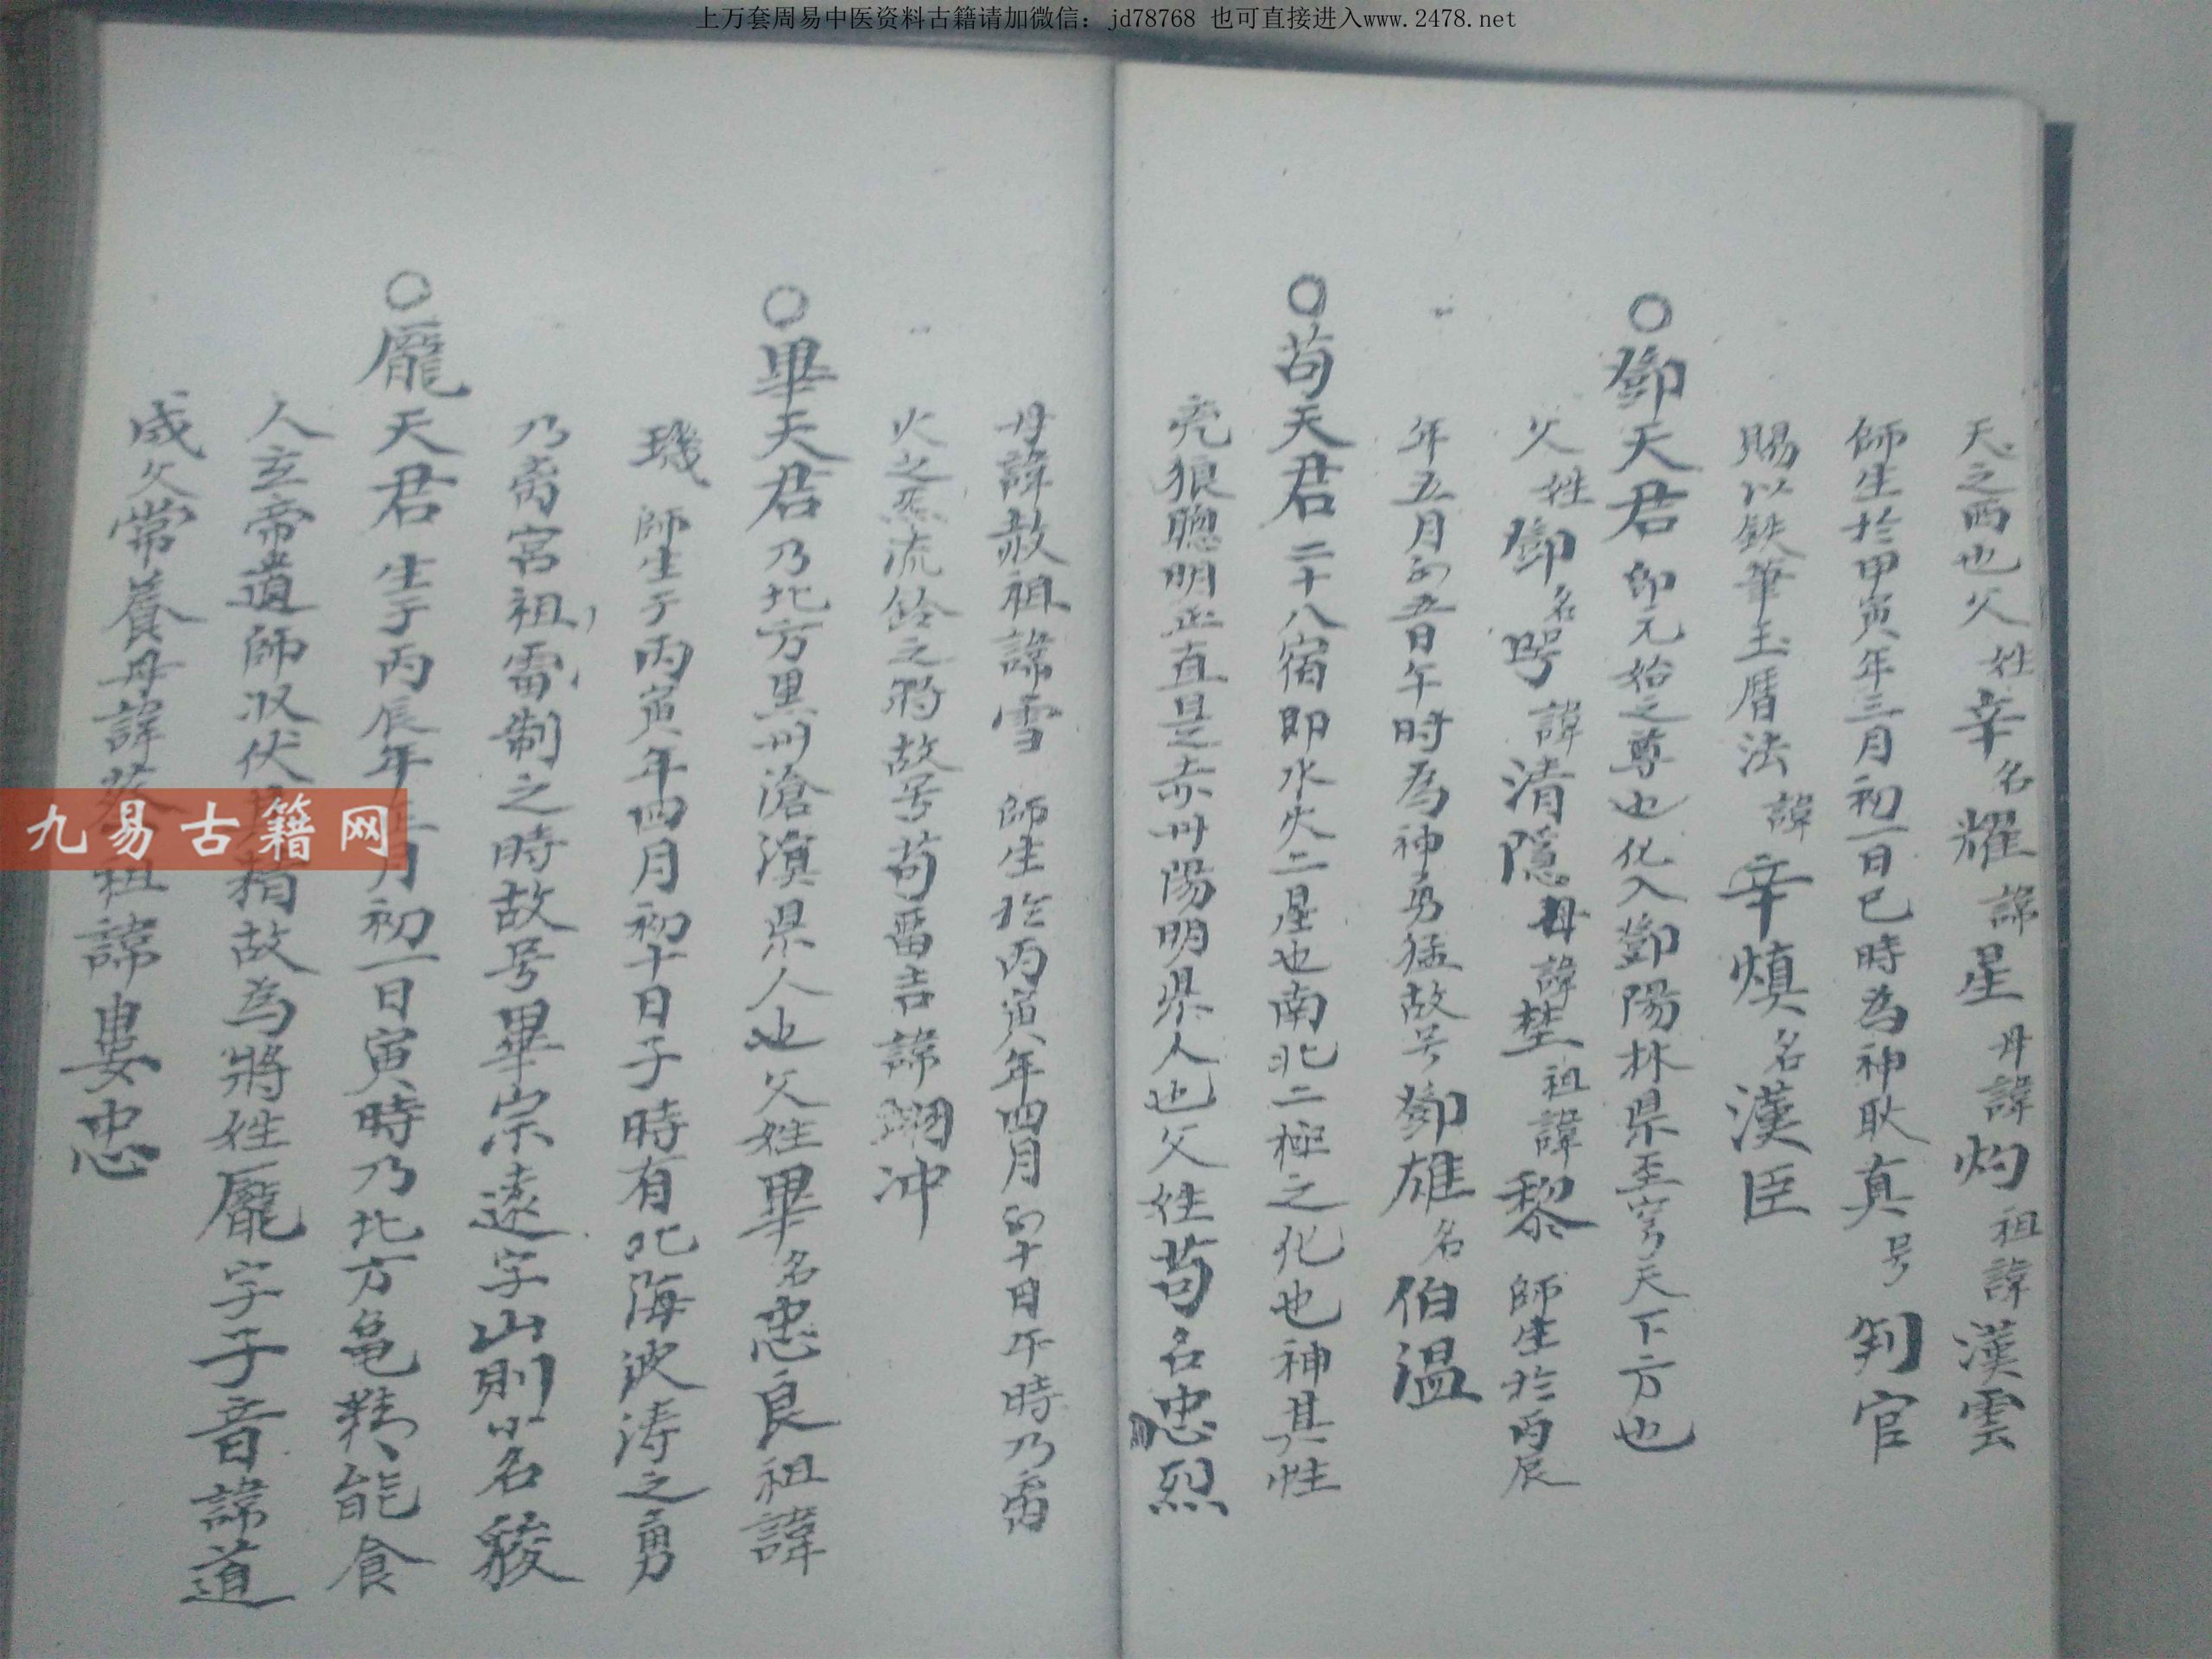 上万套周易中医资料古籍请加微信：jd78768 也可直接进入www.2478.net
天之西也父姓辛名耀諱星母諱灼祖諱漢雲
師生於甲寅年三月初一日巳時為神耿真号判官
賜以鉄筆玉曆法諱辛慎名漢臣
○鄧天君印元始之尊也化入鄧陽林県至穹天下方也
父姓鄧名諱清隱母諱埜祖諱黎師生於丙辰
年五月初五日午时為神勇猛故号鄧雄名伯温
○苟天君二十八宿即水火二星也南北二極之化也神其性
狼聰明正直是赤州陽明県人也父姓苟名忠烈
母諱赦祖諱雪師生於丙寅年四月初十日午時乃
火之流鈴之將故号苟雷吉諱冲
○畢天君乃北方黒州滄溟県人也父姓畢名忠良祖諱
璣師生于丙寅年四月初十日子時有北海波涛之勇
乃宮祖雷制之時故号畢宗遠字山則小名
○龎天君生于丙辰年月初一日寅時乃北方亀能食
人玄帝遣師收伏故為將姓龎字子音諱道
成父常養母諱祖諱婁忠
九易古籍网